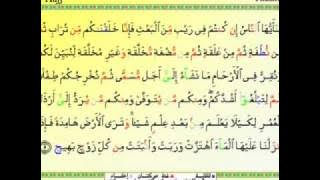 ٱلنَّاسُ إِن كُنتُمْ فِى رَيْبٍ مِّنَ ٱلْبَعْثِ فَإِنَّا خَلَقْنَٰكُم مِّن تُرَابٍ
مِن نُّطْفَةٍ ثُمَّ مِنْ عَلَقَةٍ ثُمَّ مِن مُّضْغَةٍ مُّخَلَّقَةٍ وَغَيْرِ مُخَلَّقَةٍ لِّنُبَيِّنَ
نُقِرُّ فِى ٱلْأَرْحَامِ مَا نَشَآءُ إِلَىٰٓ أَجَلٍ مُّسَمًّى ثُمَّ نُخْرِجُكُمْ طِفْلًا
لِتَبْلُغُوٓا۟ أَشُدَّكُمْ وَمِنكُم مَّن يُتَوَفَّىٰ وَمِنكُم مَّن يُرَدُّ إِلَىٰٓ
ٱلْعُمُرِ لِكَيْلَا يَعْلَمَ مِنۢ بَعْدِ عِلْمٍ شَيْـًٔا وَتَرَى ٱلْأَرْضَ هَامِدَةً فَإِذَا
عَلَيْهَا ٱلْمَآءَ ٱهْتَزَّتْ وَرَبَتْ وَأَنۢبَتَتْ مِن كُلِّ زَوْجٍۭ بَهِيجٍ